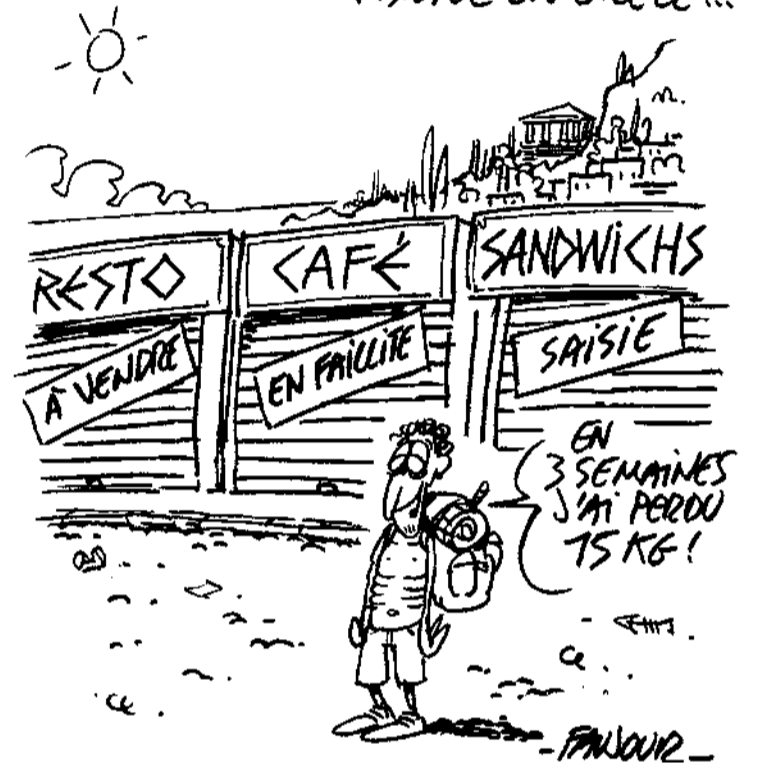 RESTO
CAFÉ
SANDWiCHS
À VENDRE
EN FAILLITE
SAiSiE
EN
3 SEMAINES
J'Ai PERDU
15 KG!